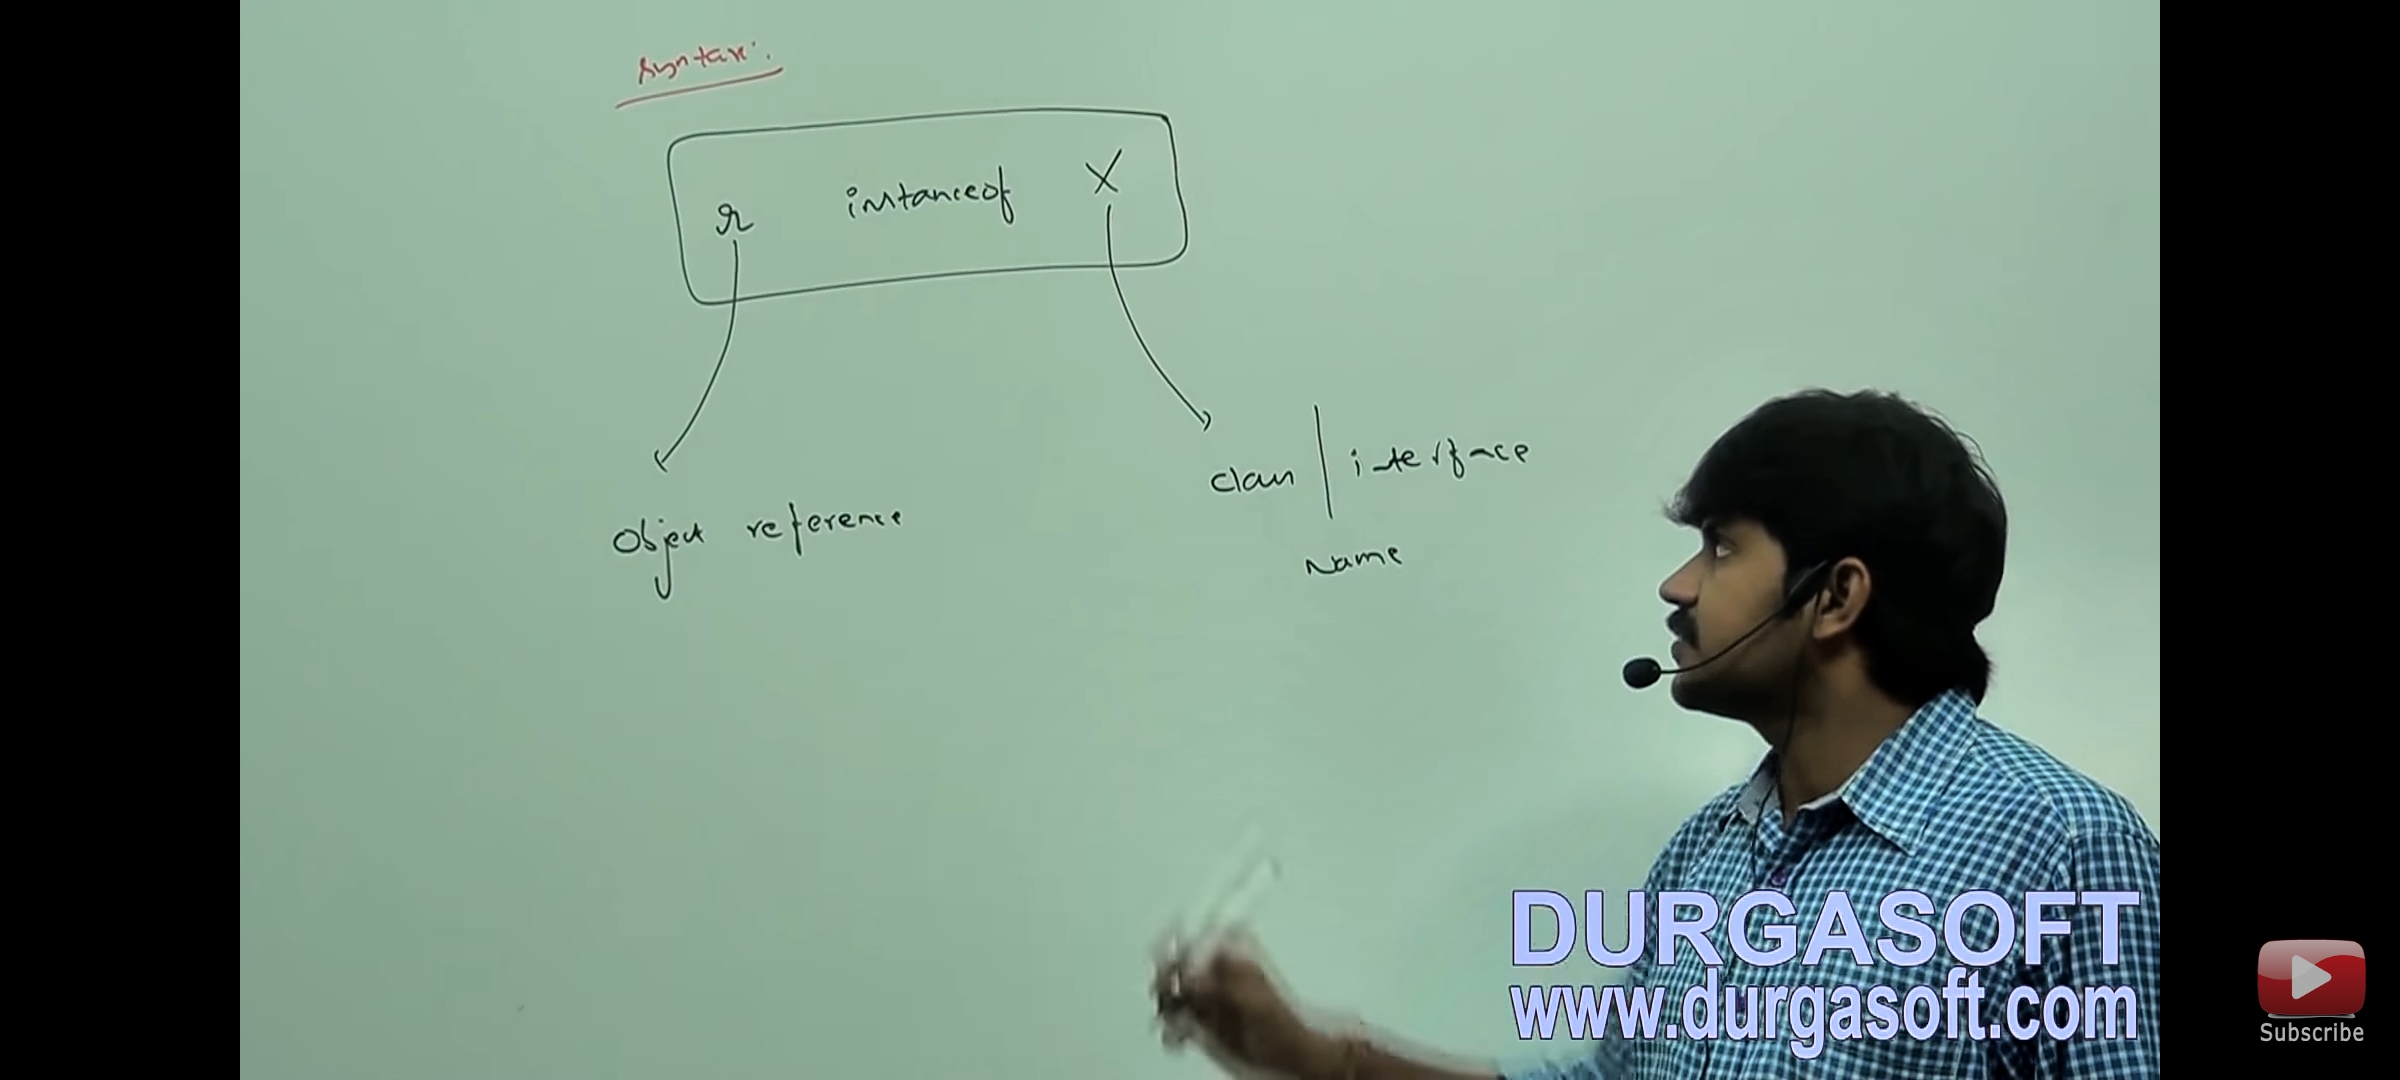 Syntax:
r instanceof X
Object reference
class | interface
Name
DURGASOFT
www.durgasoft.com
Subscribe